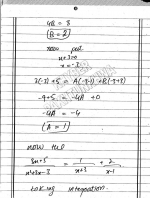 4B = 8
B = 2
now put
x+3=0
x = -3
3(-3)+5 = A(-3-1)+B(-3+3)
-9+5 = -4A + 0
-4A = -4
A = 1
now the
3x+5 / x²+2x-3 = 1 / x+3 + 2 / x-1
integration.